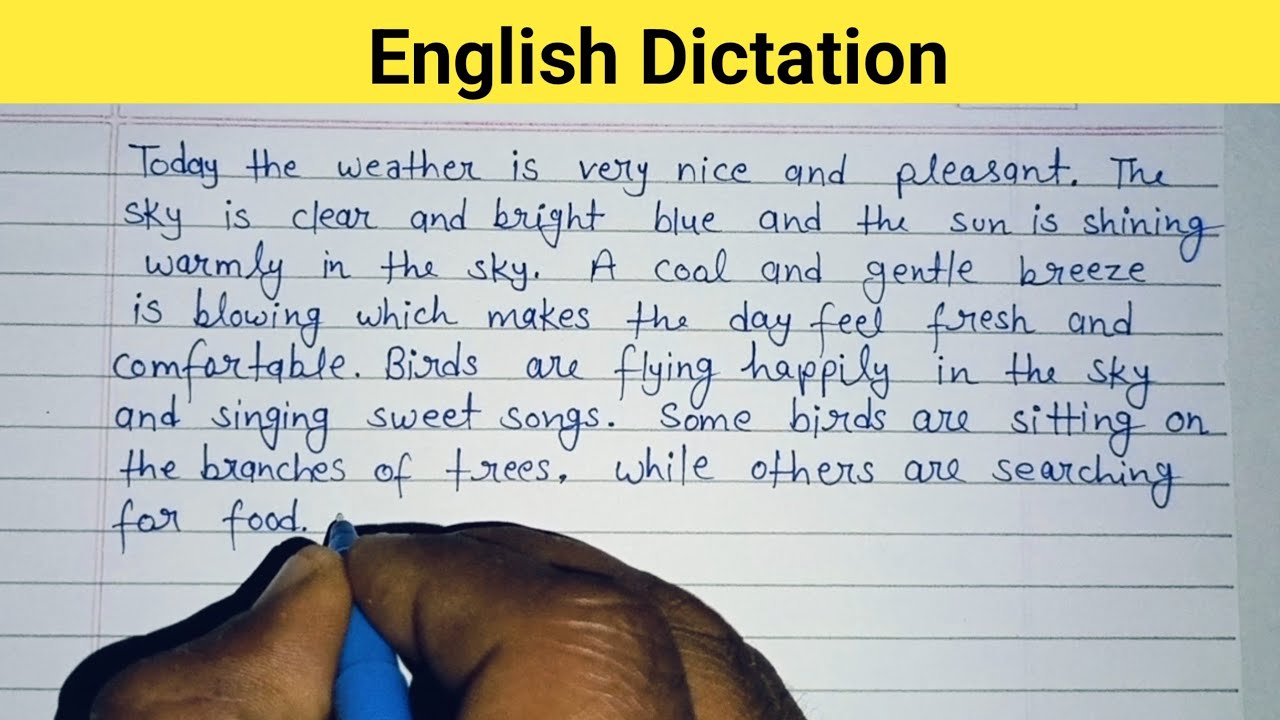 English Dictation
Today the weather is very nice and pleasant. The
sky is clear and bright blue and the sun is shining
warmly in the sky. A coal and gentle breeze
is blowing which makes the day feel fresh and
comfortable. Birds are flying happily in the sky
and singing sweet songs. Some birds are sitting on
the branches of trees, while others are searching
for food.